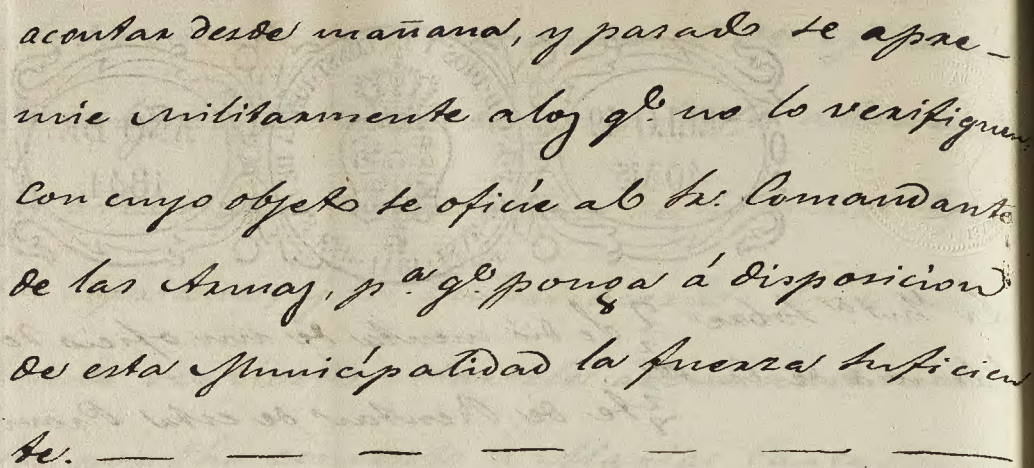 acontar desde mañana, y pasado se apre-
mie militarmente alos qe. no lo verifiquen:
Con cuyo objeto se oficie al Sr. Comandante
de las Armas, pa. qe. ponga á disposicion
de esta Municipalidad la fuerza suficien
te. — — — — — — —